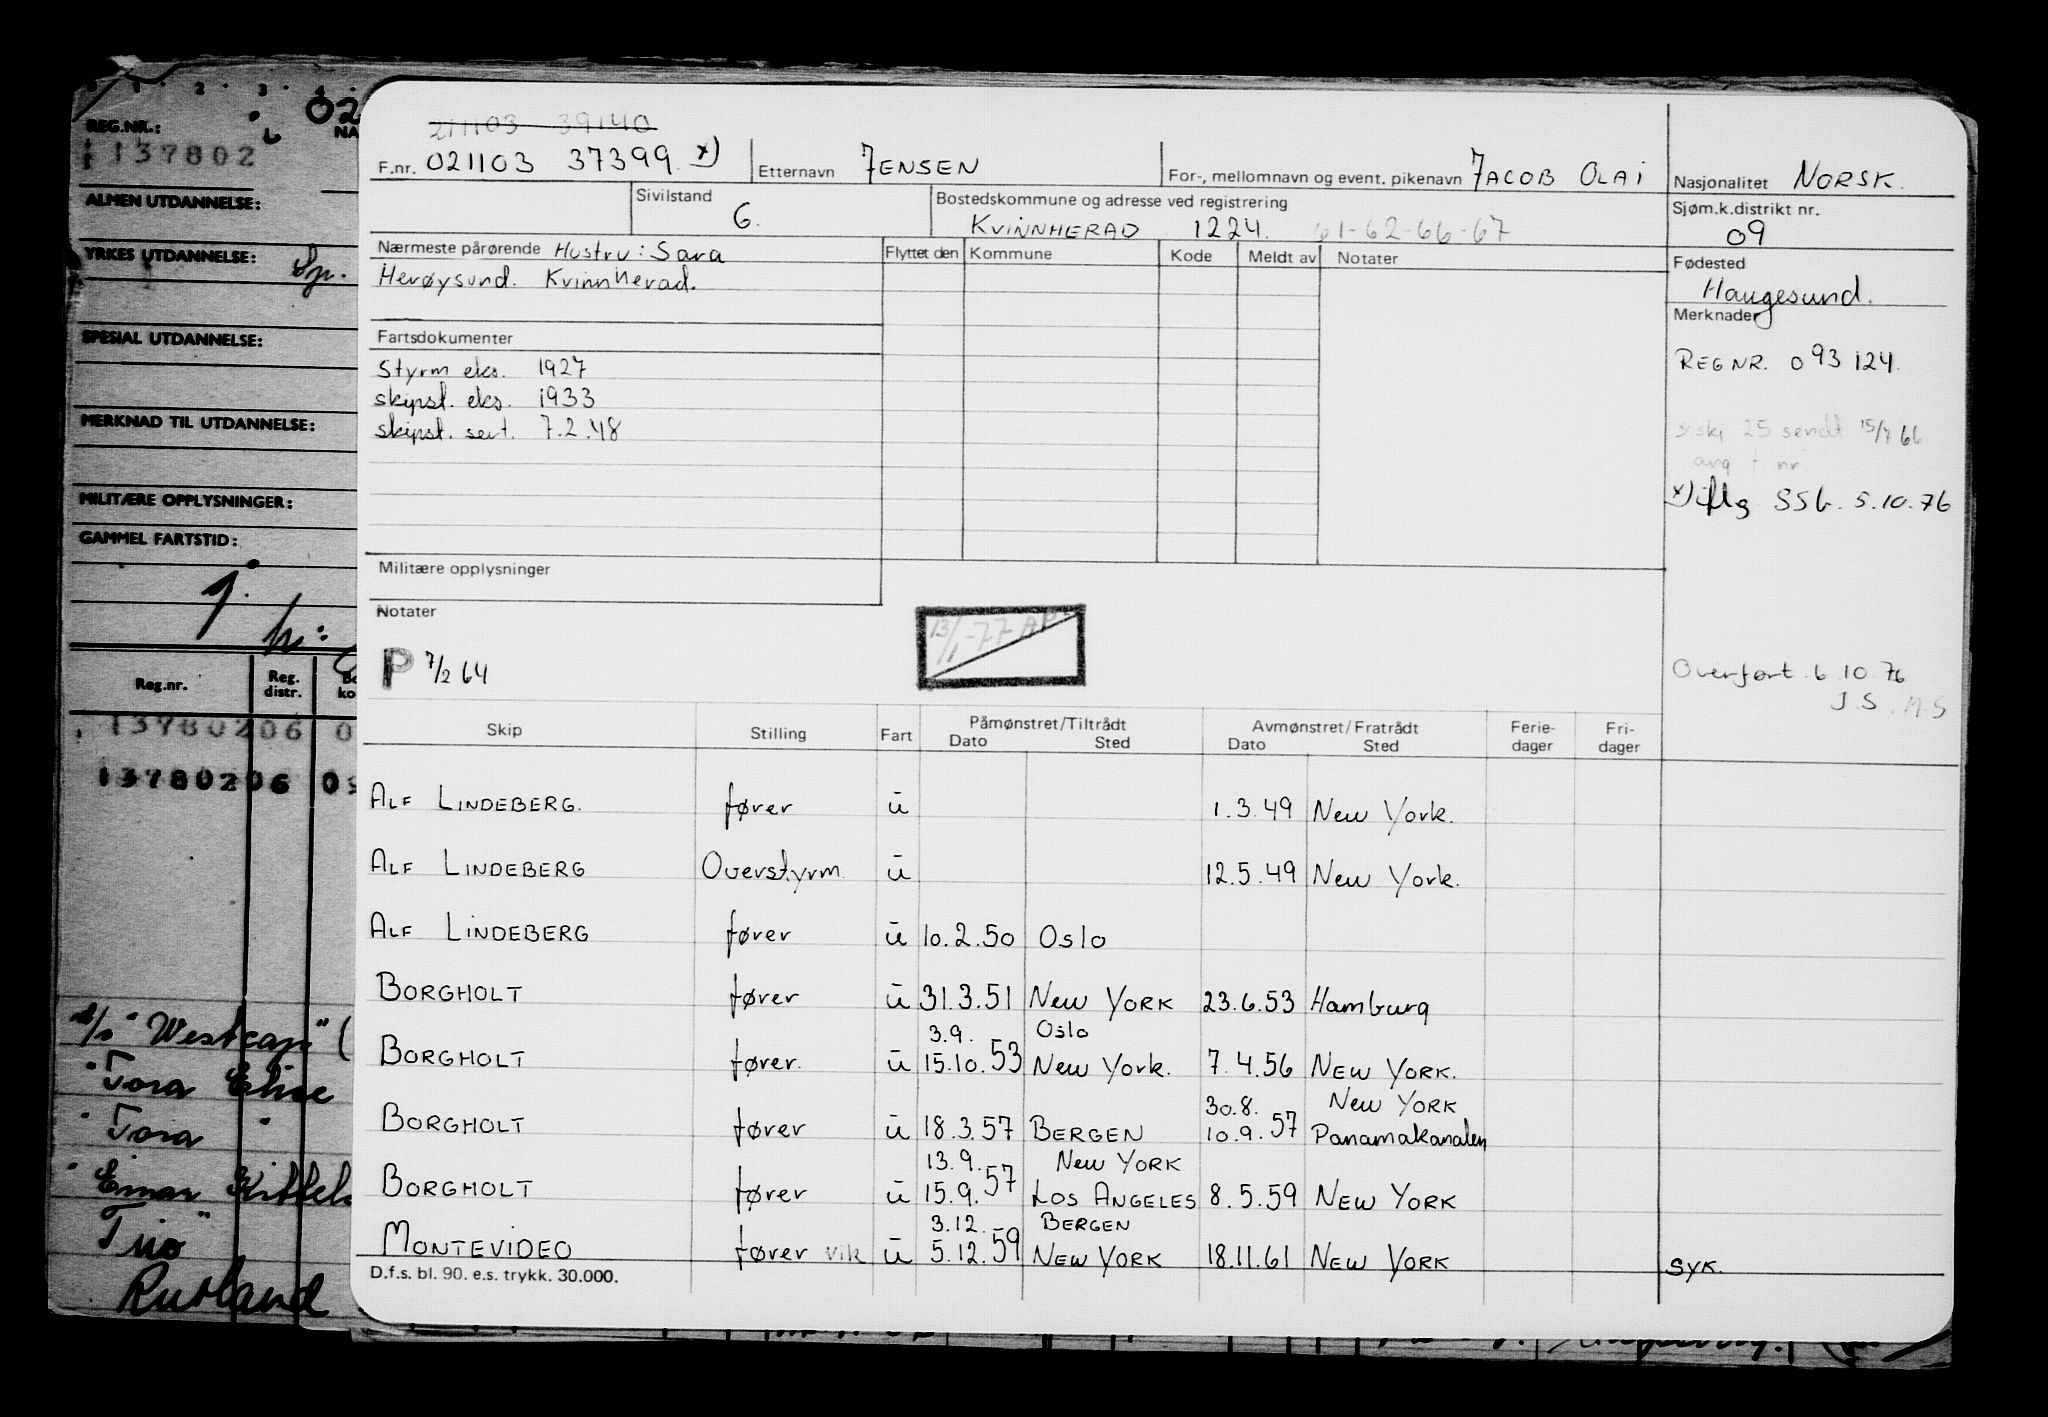 REG.NR.: 02
137802
ALMEN UTDANNELSE:
YRKES UTDANNELSE:
SPESIAL UTDANNELSE:
MERKNAD TIL UTDANNELSE:
MILITÆRE OPPLYSNINGER:
GAMMEL FARTSTID:
Reg.nr. Reg. distr.
13780206 0
13780206 09
"Westcap" (
"Tora Elise
"Tora "
"Einar
Trio"
Rutland
211103 39140
F.nr. 021103 37399 x) Etternavn JENSEN For-, mellomnavn og event. pikenavn JACOB OLAI Nasjonalitet NORSK.
Sivilstand G. Bostedskommune og adresse ved registrering Sjøm.k.distrikt nr.
KVINNHERAD 1224. 61-62-66-67 09
Nærmeste pårørende Hustru: Sara Flyttet den Kommune Kode Meldt av Notater Fødested
Herøysund. Kvinnherad. Haugesund.
Merknader
Fartsdokumenter
Styrm eks. 1927 REG NR. 093124.
skipsf. eks. 1933
skipsf. sert. 7.2.48 x) skj 25 sendt 15/7 66
ang f. nr.
x) iflg SSB. 5.10.76
Militære opplysninger
Notater
13/1-77
P 7/2 64 Overført 6.10.76
J.S. M S
Skip Stilling Fart Påmønstret/Tiltrådt Avmønstret/Fratrådt Ferie- Fri-
Dato Sted Dato Sted dager dager
ALF LINDEBERG. fører ū 1.3.49 New York.
ALF LINDEBERG Overstyrm. ū 12.5.49 New York.
ALF LINDEBERG fører ū 10.2.50 Oslo
BORGHOLT fører ū 31.3.51 New YORK 23.6.53 Hamburg
3.9. Oslo
BORGHOLT fører. ū 15.10.53 New York. 7.4.56 NEW YORK.
30.8. New YORK
BORGHOLT fører ū 18.3.57 BERGEN 10.9.57 Panamakanalen
13.9. New YORK
BORGHOLT fører ū 15.9.57 LOS ANGELES 8.5.59 NEW YORK
3.12. BERGEN
MONTEVIDEO fører vik ū 5.12.59 NEW YORK 18.11.61 NEW YORK SYK.
D.f.s. bl. 90. e.s. trykk. 30.000.